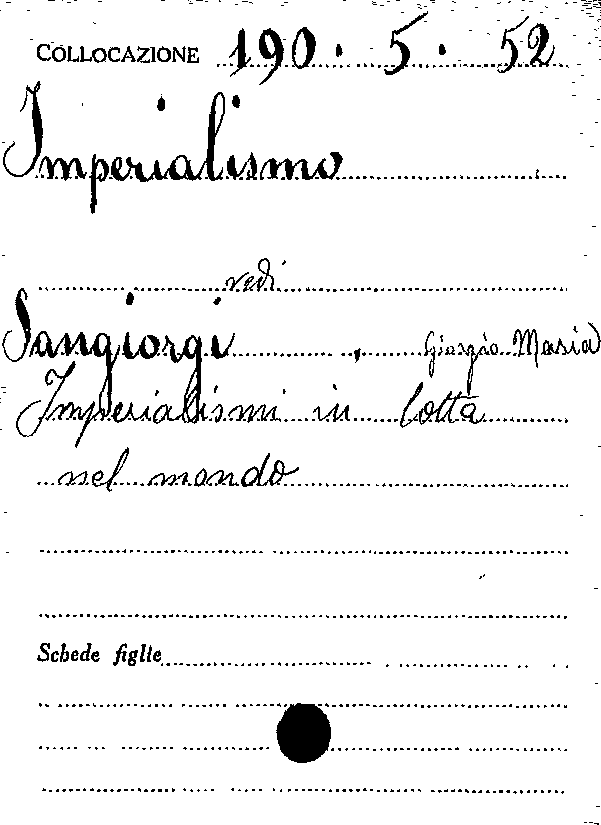 COLLOCAZIONE 190. 5. 52
Imperialismo
vedi
Sangiorgi, Giorgio Maria
Imperialismi in lotta
nel mondo
Schede figlie